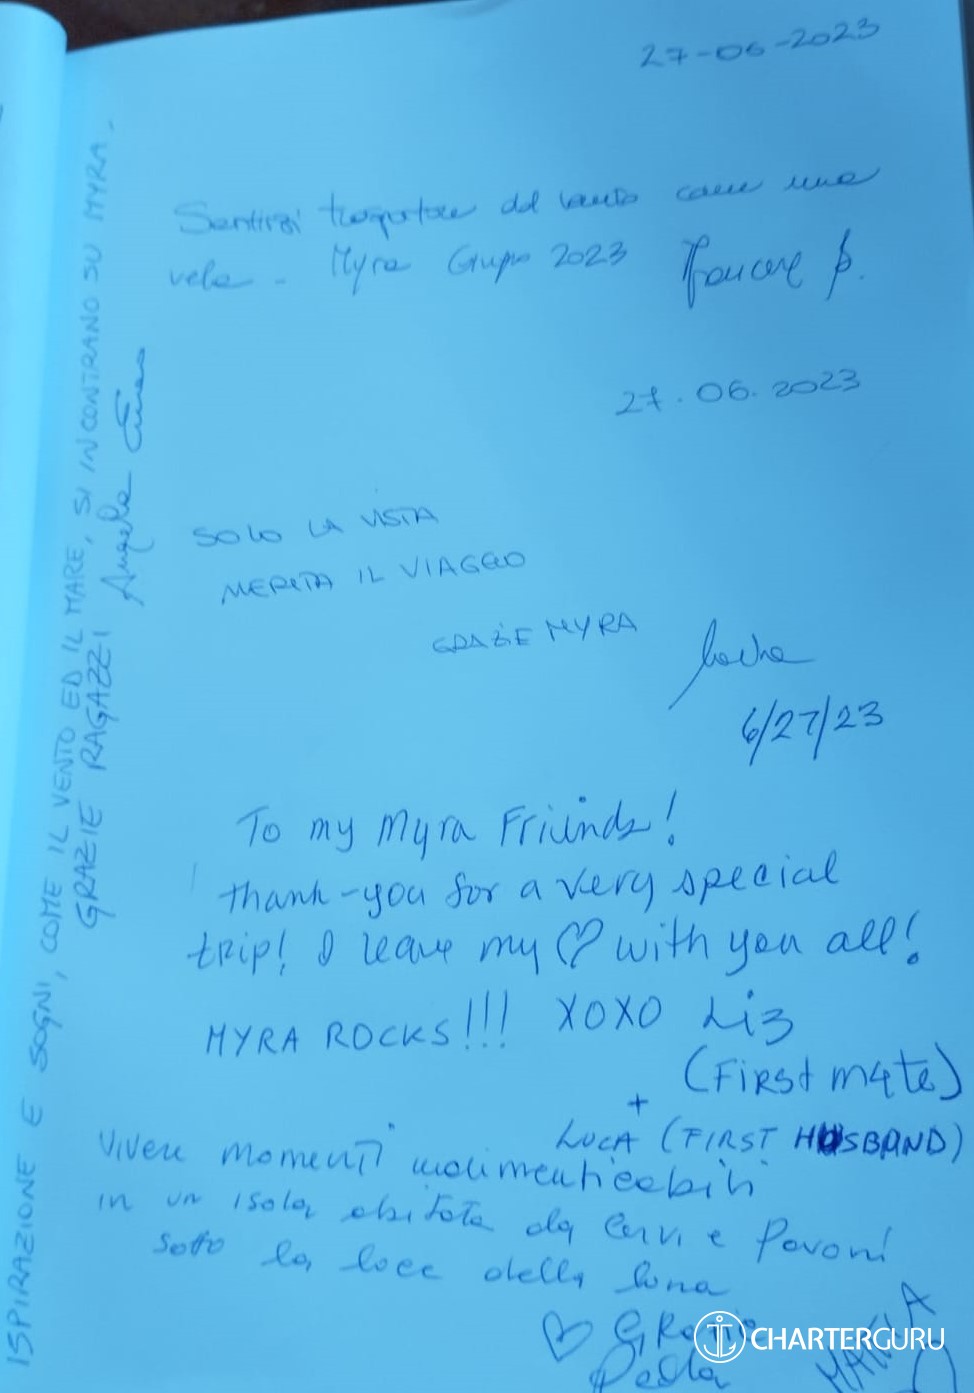 27-06-2023
Sentirsi trasportare dal vento come una
vela - Myra Group 2023
27.06.2023
SOLO LA VISTA
MERITA IL VIAGGIO
GRAZIE MYRA
6/27/23
To my Myra Friends!
thank-you for a very special
trip! I leave my ♡ with you all!
MYRA ROCKS!!! XOXO Liz
(First mate)
+
LUCA (FIRST HUSBAND)
Vivere momenti indimenticabili
in un isola abitata da Cervi e Pavoni
sotto la luce della luna
♡ Grazie
Paola
ISPIRAZIONE E SOGNI, COME IL VENTO ED IL MARE, SI INCONTRANO SU MYRA.
GRAZIE RAGAZZI Angela
CHARTERGURU